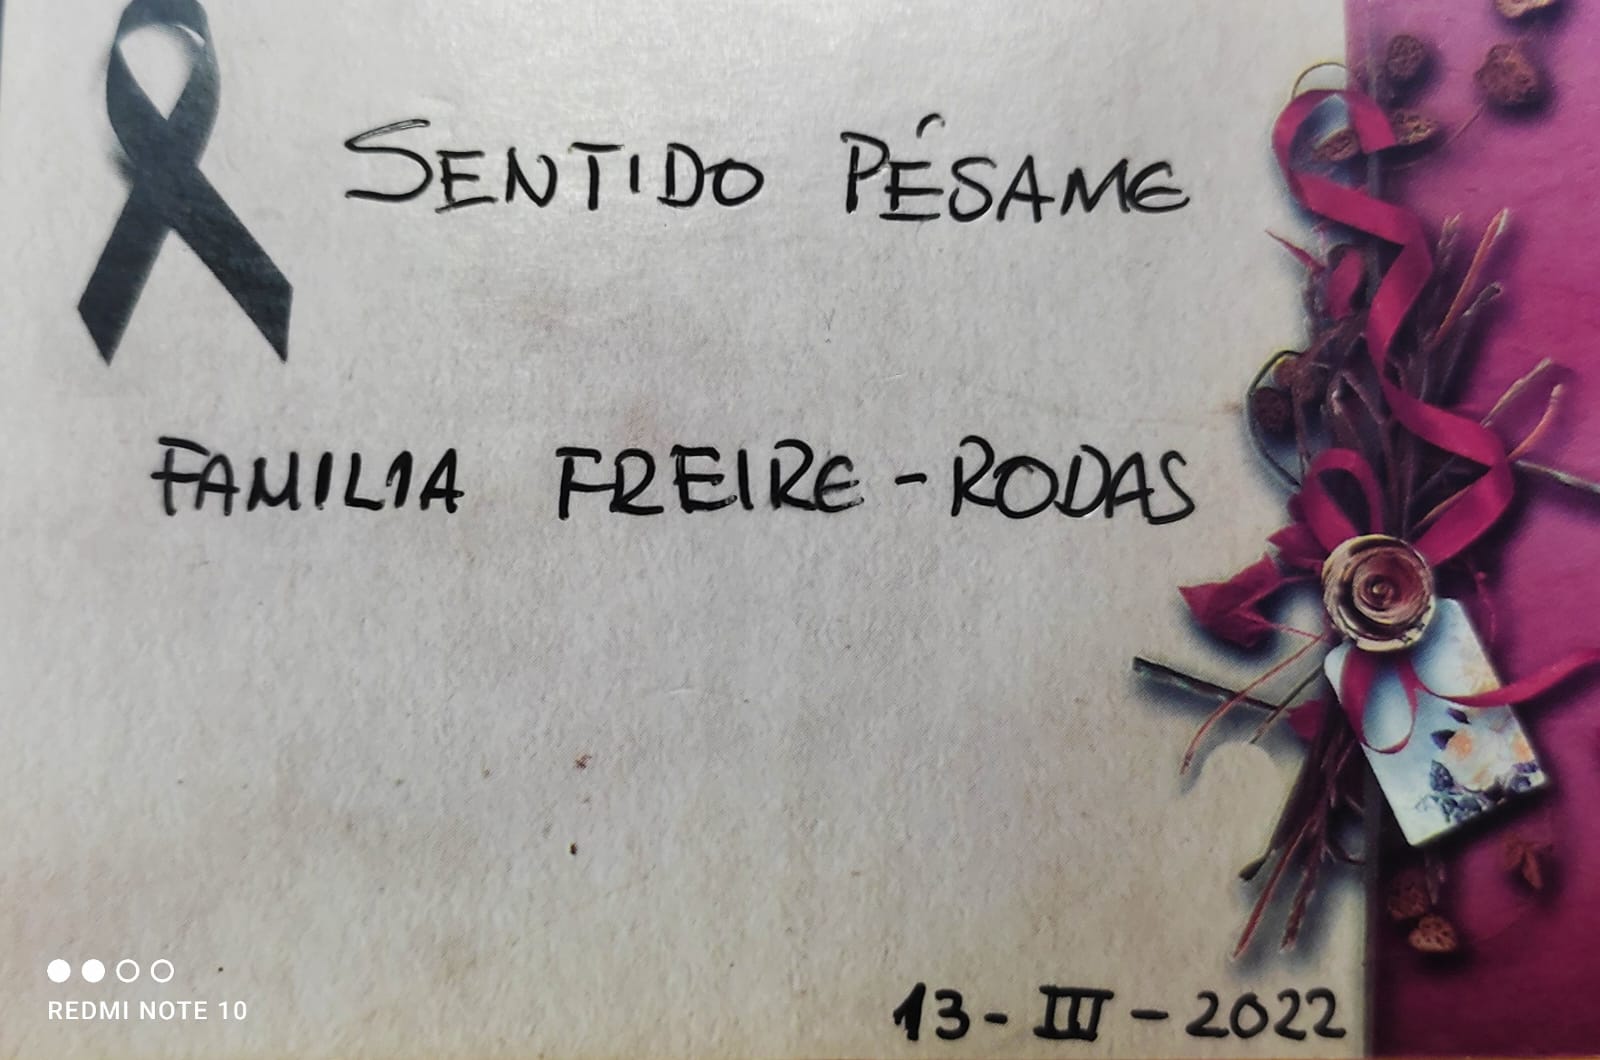 SENTIDO PÉSAME
FAMILIA FREIRE-RODAS
13-III-2022
REDMI NOTE 10